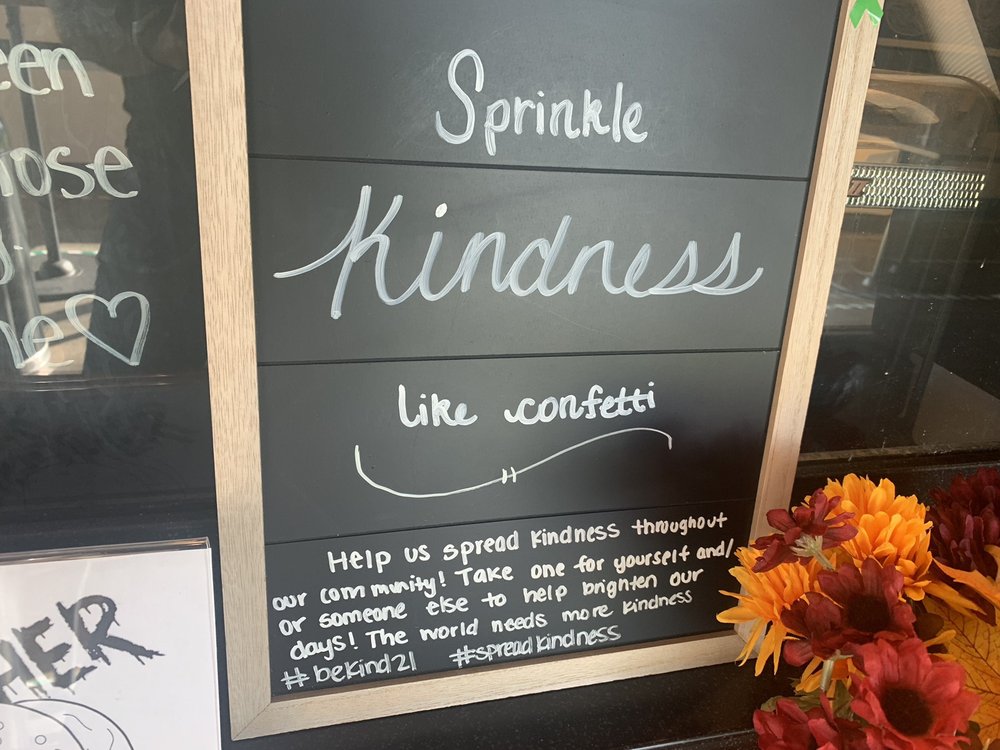 Sprinkle
Kindness
like confetti
Help us spread kindness throughout
our community! Take one for yourself and/
or someone else to help brighten our
days! The world needs more kindness
#bekind21 #spreadkindness